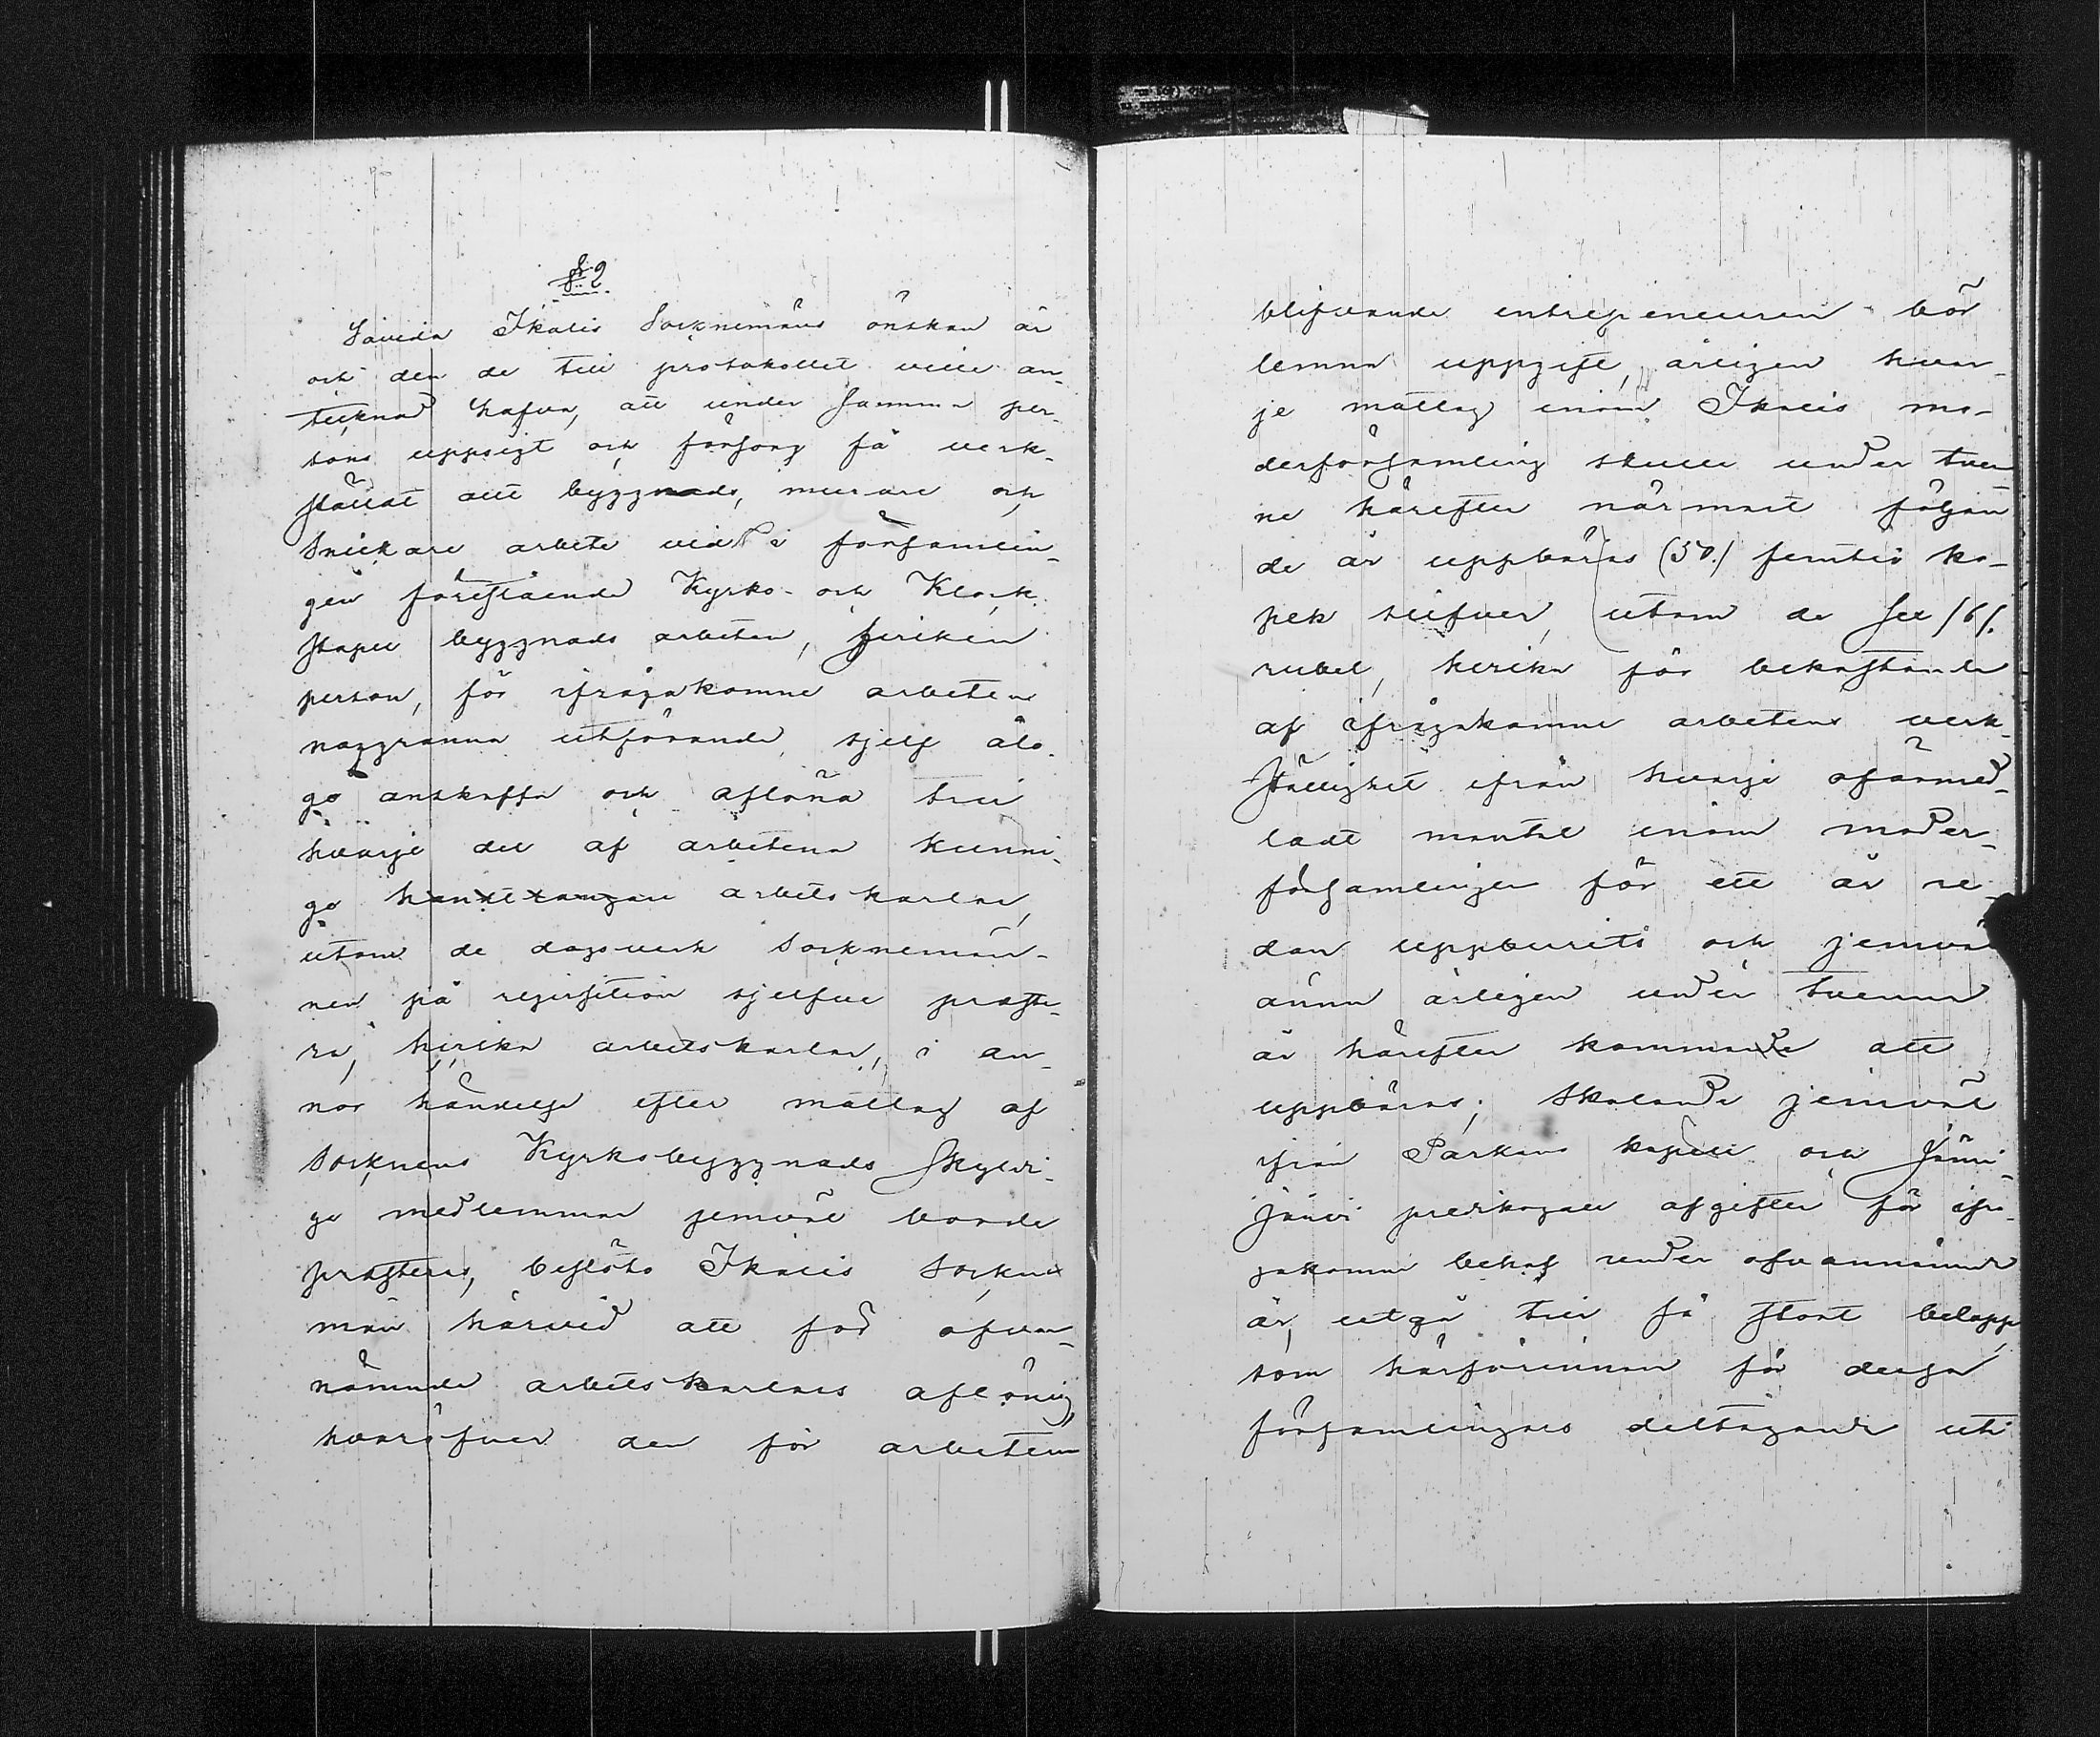 § 2
Såvida Ikalis Socknemäns önskan är
och den de till protokollet velle an-
tecknad hafva, att under samma per-
sons uppsigt och försorg få verk-
stäldt allt byggnads, murare och
Snickare arbete vid i församlin-
gen förestående Kyrko- och Klock-
stapel byggnads arbeten, hvilken
person, för ifrågakomne arbetens
noggranna utförande, sjelf ålå-
ge anskaffa och aflöna till
hvarje del af arbetena kunni-
ge handtlangare arbetskarlar,
utom de dagsverk Sockenmän-
nen på reqvisition sjelfve preste-
ra, hvilka arbetskarlar, i an-
nor händelse efter matlag af
Socknens Kyrkobyggnads skyldi-
ge medlemmar jemväl borde
presteras, beslöto Ikalis Sockne
män härvid att för ofvan-
nämnde arbetskarlars aflöning,
hvaröfver den för arbeten
blifvande entrepeneuren bör
lemna uppgift, årligen hvar-
je matlag inom Ikalis mo-
derförsamling skulle under tven-
ne härefter närmast följan
de år uppbäras (50.) femtio ko-
pek silfver, utom de sex /6/.
rubel, hvilka för bekostande
af ifrågakomne arbetens verk-
ställighet ifrån hvarje oförmed-
ladt mantal inom moder-
församlingen för ett år re-
dan uppburits och jemväl
ännu årligen under tvenne
år härefter kommande att
uppbäras; Skolande jemväl
ifrån Parkano kapell och Jämi-
järvi predikogäll afgifter för ifrå-
gakomne behof under ofvannämnde
år, utgå till så stort belopp
som härförinnan för dessa
församlingars deltagande uti